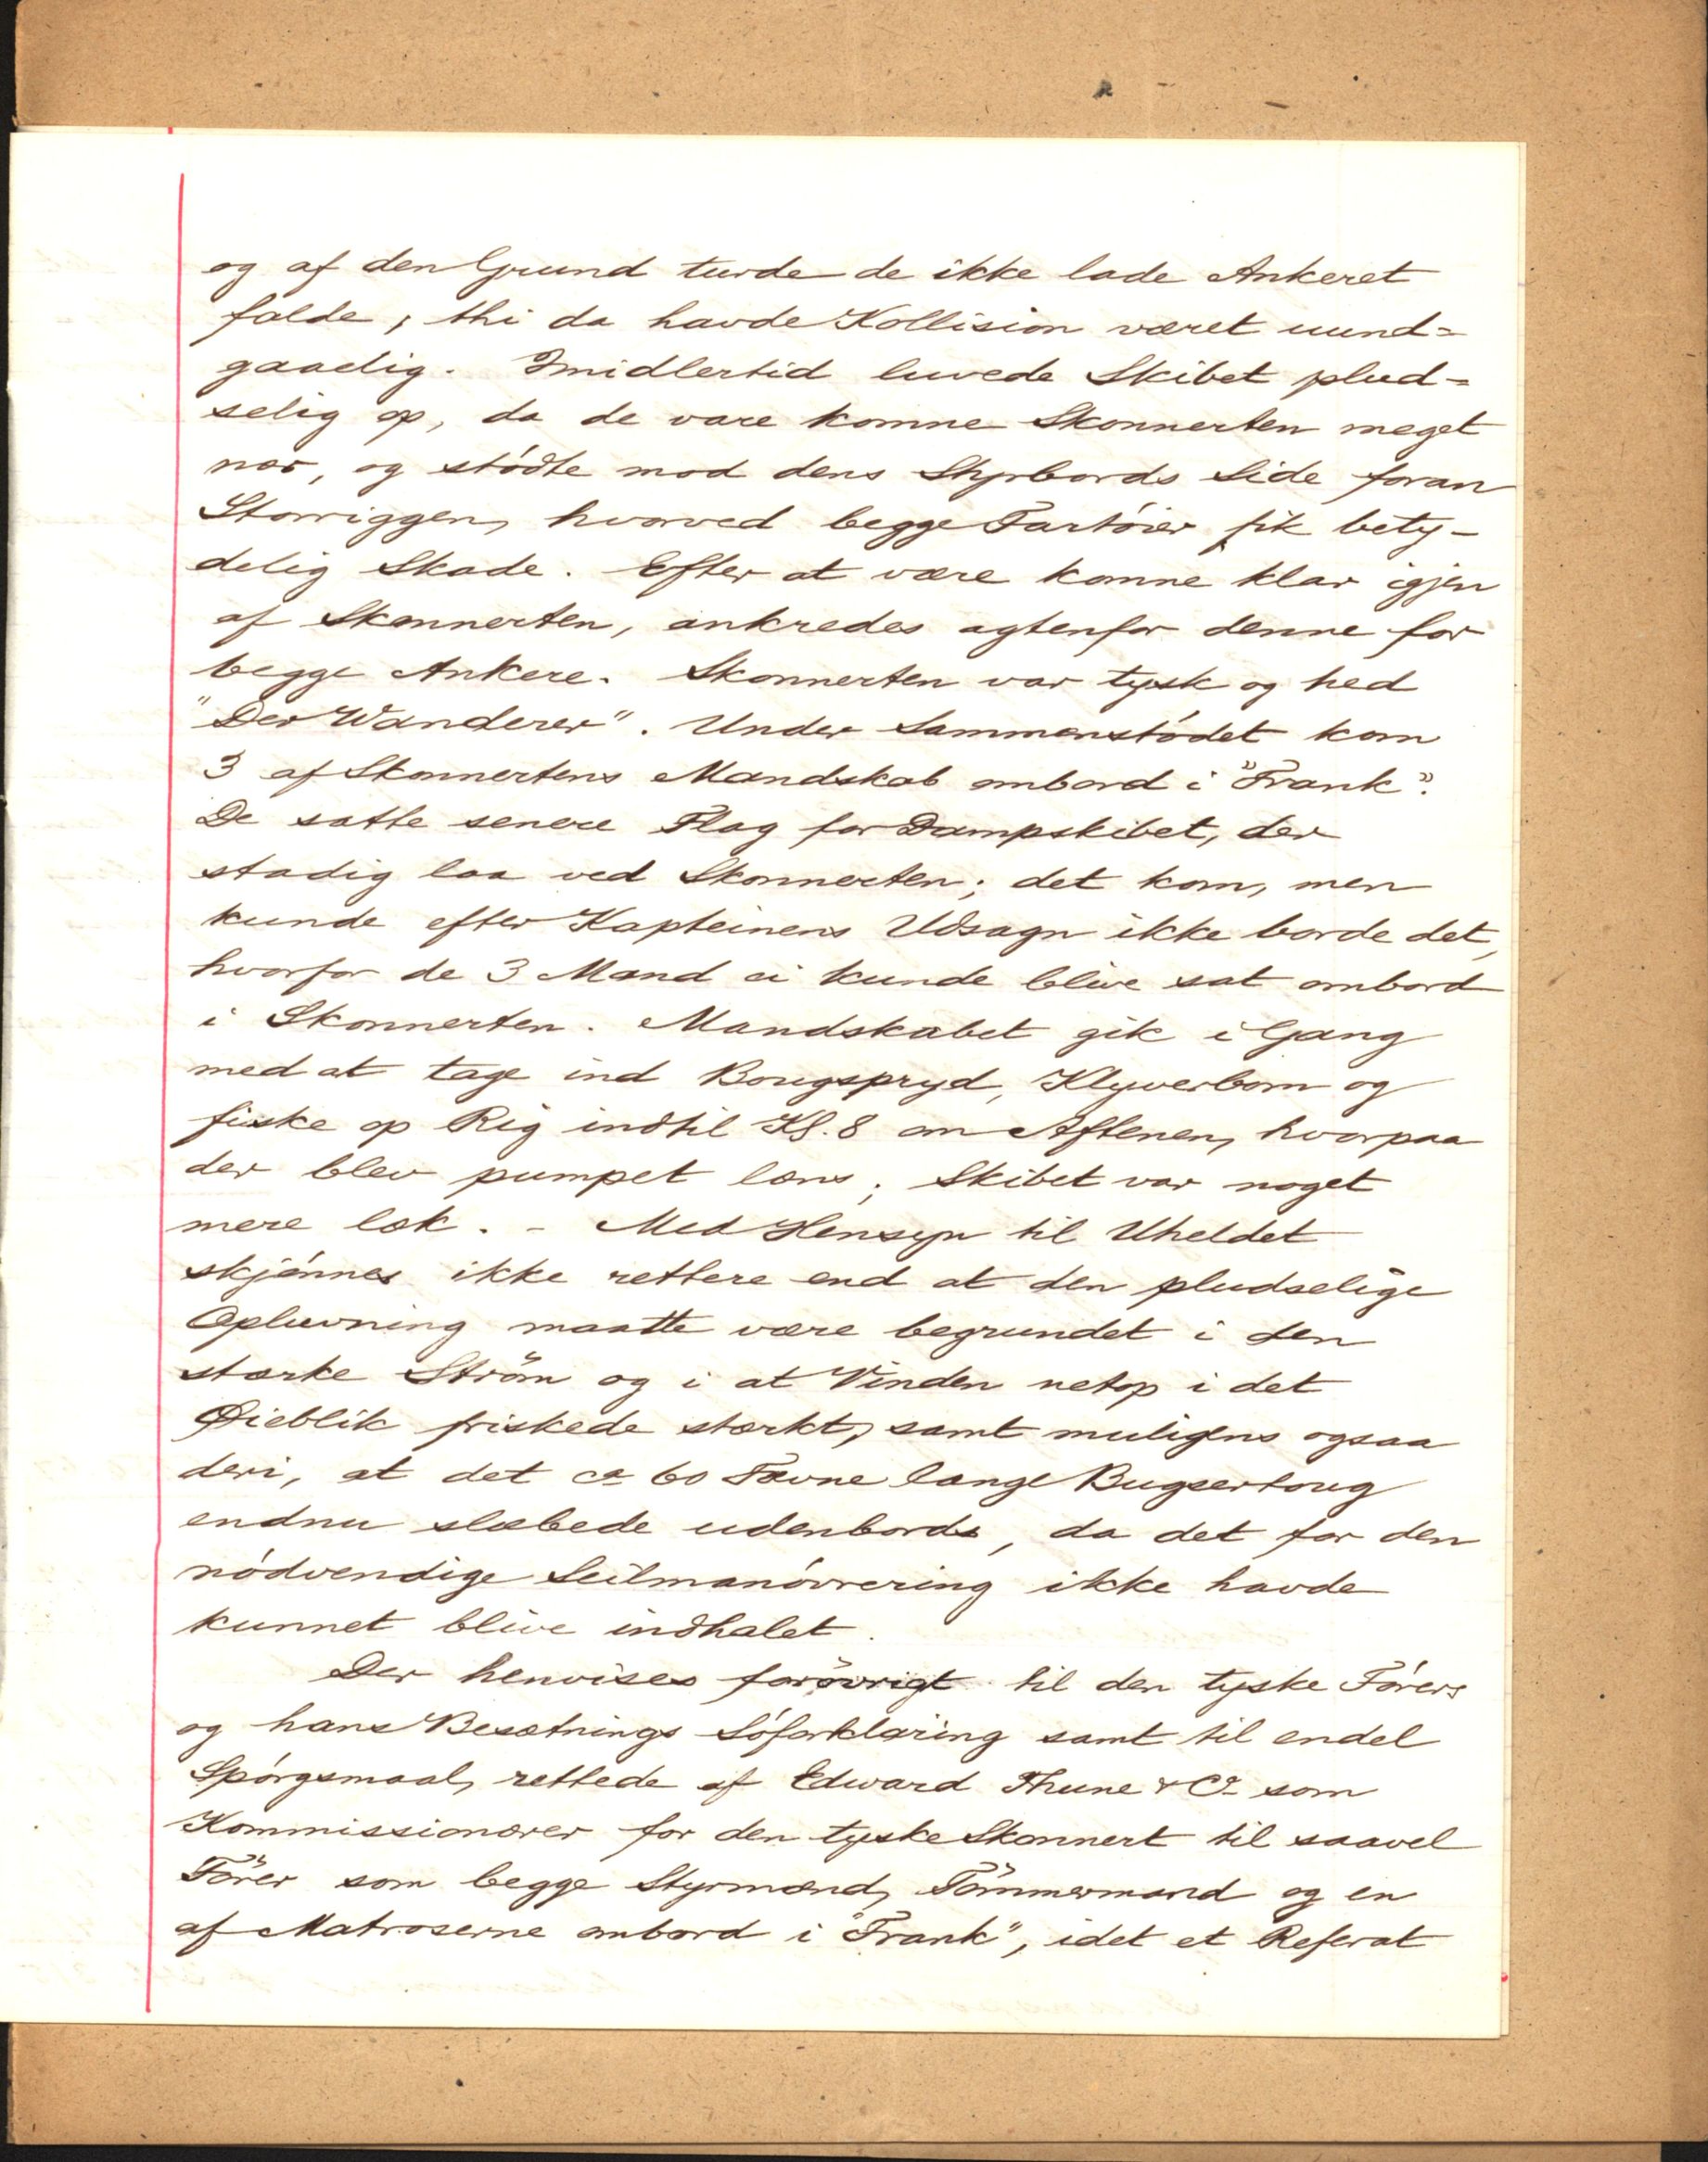 og af den Grund turde de ikke lade Ankeret
falde, thi da havde Kollision været uund=
gaaelig. Imidlertid luvede Skibet plud=
selig op, da de vare komne Skonnerten meget
nær, og stödte mod dens Styrbords Side foran
Storriggen, hvorved begge Fartöier fik bety-
delig Skade. Efter at være komne klar igjen
af Skonnerten, ankredes agtenfor denne for
begge Ankere. Skonnerten var tysk og hed
"Der Wanderer". Under Sammenstödet kom
3 af Skonnertens Mandskab ombord i "Frank".
De satte senere Flag for Dampskibet, der
stadig laa ved Skonnerten; det kom, men
kunde efter Kapteinens Udsagn ikke borde det,
hvorfor de 3 Mand ei kunde blive sat ombord
i Skonnerten. Mandskabet gik i Gang
med at tage ind Bougspryd, Klyverbom og
fiske op Rig indtil Kl. 8 om Aftenen, hvorpaa
der blev pumpet læns; Skibet var noget
mere læk. - Med Hensyn til Uheldet
skjönnes ikke rettere end at den pludselige
Opluvning maatte være begrundet i den
stærke Ström og i at Vinden netop i det
Øieblik friskede stærkt, samt muligens ogsaa
deri, at det ca 60 Favne lange Bugsertoug
endnu slæbede udenbords, da det for den
nödvendige Seilmanövrering ikke havde
kunnet blive indhalet.
Der henvises forövrigt til den tyske Förers
og hans Besætnings Söforklaring samt til endel
Spörgsmaal, rettede af Edward Thune & Co som
Kommissionærer for den tyske Skonnert til saavel
Förer som begge Styrmænd, Tömmermand og en
af Matroserne ombord i "Frank", idet et Referat